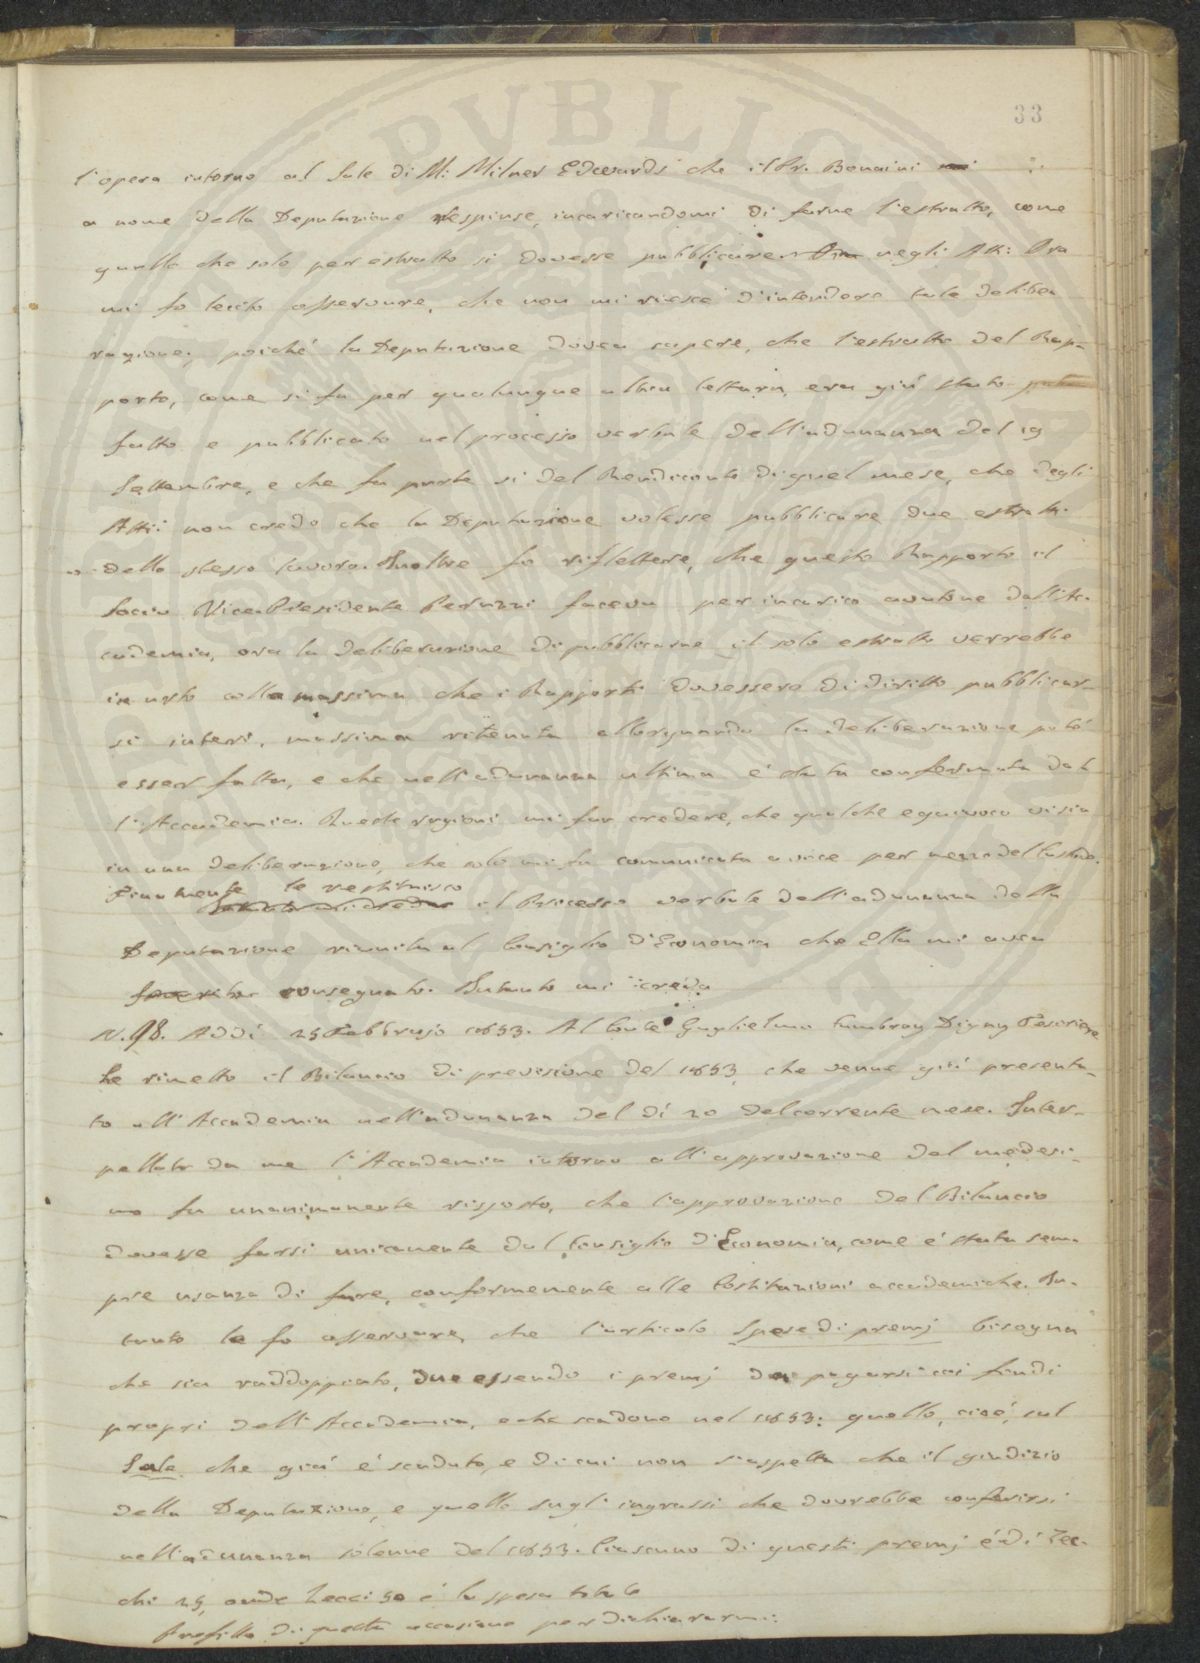 33
l'opera intorno al Sale di M: Milner Edwards che il Pr. Bonaini
a nome della Deputazione respinse, incaricandomi di farne l'estratto, come
quello che solo per estratto si dovesse pubblicare negli Atti: Ora
mi fo lecito osservare, che non mi riesce d'intendere tale delibe
razione; poiché la Deputazione dovea sapere, che l'estratto del Rap-
porto, come si fa per qualunque altra lettura, era già stato
fatto e pubblicato nel processo verbale dell'adunanza del 19
Settembre, e che fa parte sì del Rendiconto di quel mese, che degli
Atti: non credo che la Deputazione volesse pubblicare due estratti
dello stesso lavoro. Inoltre fo riflettere, che questo Rapporto il
Socio Vice-Presidente Peruzzi faceva per incarico avutone dall'Ac-
cademia, ora la deliberazione di pubblicarne il solo estratto verrebbe
in urto colla massima che i Rapporti dovessero di diritto pubblicar-
si interi, massima ritenuta allorquando la deliberazione poté
esser fatta, e che nell'adunanza ultima é stata confermata dal
l'Accademia. Queste ragioni mi fan credere, che qualche equivoco vi sia
in una deliberazione, che solo mi fu comunicata a voce per mezzo del Custode.
Finalmente le restituisco il Processo verbale dell'adunanza della
Deputazione riunita al Consiglio d'Economia che Ella mi avea
consegnato. Intanto mi creda
N. 98. Addì 25 Febbrajo 1853. Al Conte Guglielmo Cambray Digny Tesoriere
Le rimetto il Bilancio di previsione del 1853, che venne già presenta-
to all'Accademia nell'adunanza del dì 20 del corrente mese. Inter-
pellata da me l'Accademia intorno all'approvazione del medesi-
mo fu unanimamente risposto, che l'approvazione del Bilancio
dovesse farsi unicamente dal Consiglio d'Economia, come é stata sem-
pre usanza di fare, conformemente alle Costituzioni accademiche. In-
tanto le fo osservare, che l'articolo Spese di premj bisogna
che sia raddoppiato, due essendo i premj da pagarsi coi fondi
propri dell'Accademia, e che scadono nel 1853: quello, cioé, sul
Sale che già é scaduto, e di cui non s'aspetta che il giudizio
della Deputazione, e quello sugli ingrassi che dovrebbe conferirsi
nell'adunanza solenne del 1853. Ciascuno di questi premj é di Zec-
chi 25, onde Zecci 50 é la spesa totale
Profitto di questa occasione per dichiararmi: